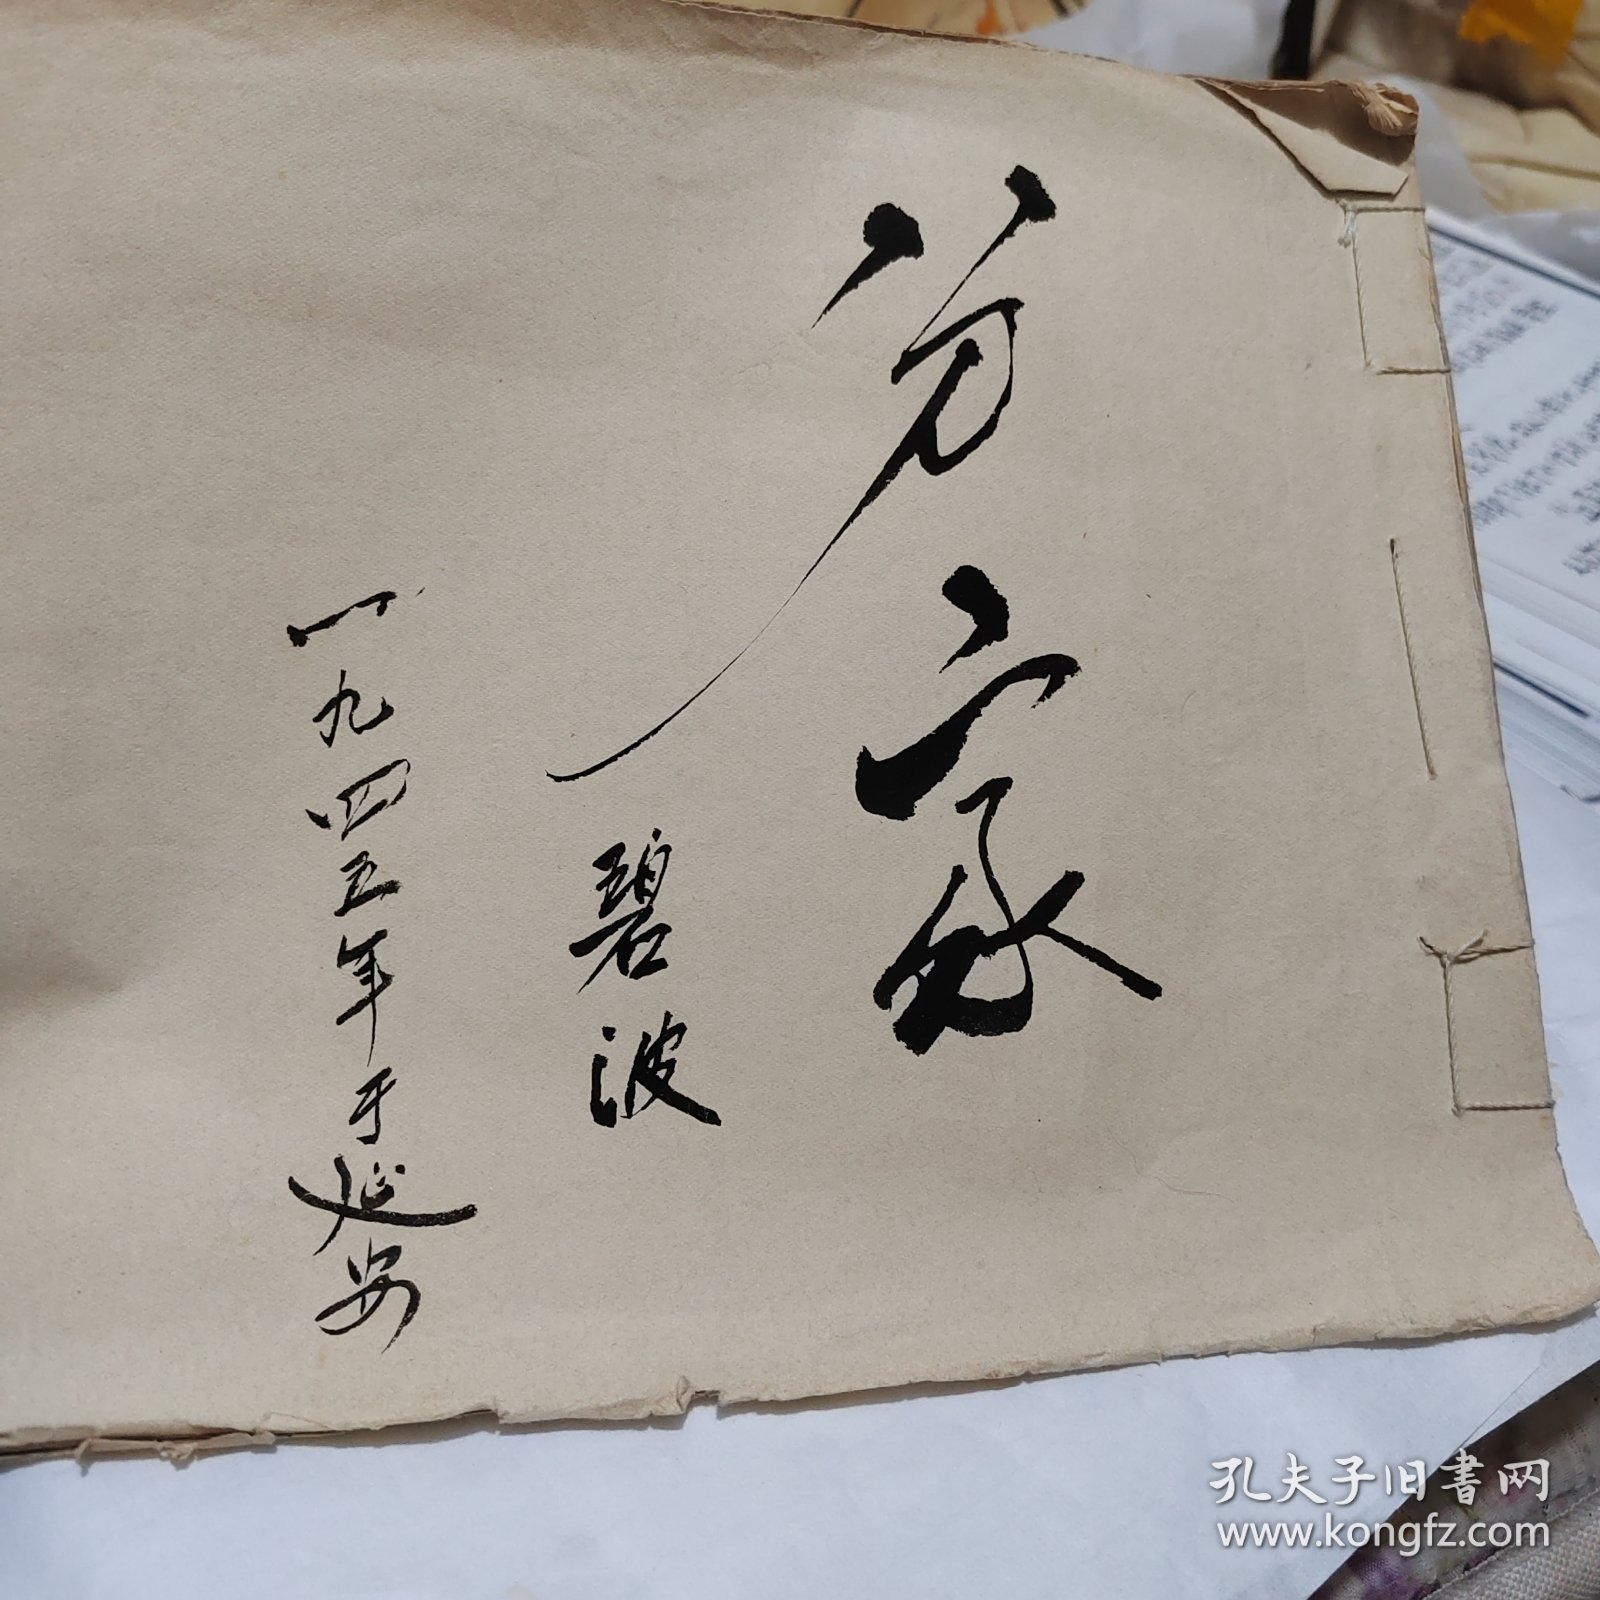 分家
碧波
一九四五年于延安
孔夫子旧书网
www.kongfz.com